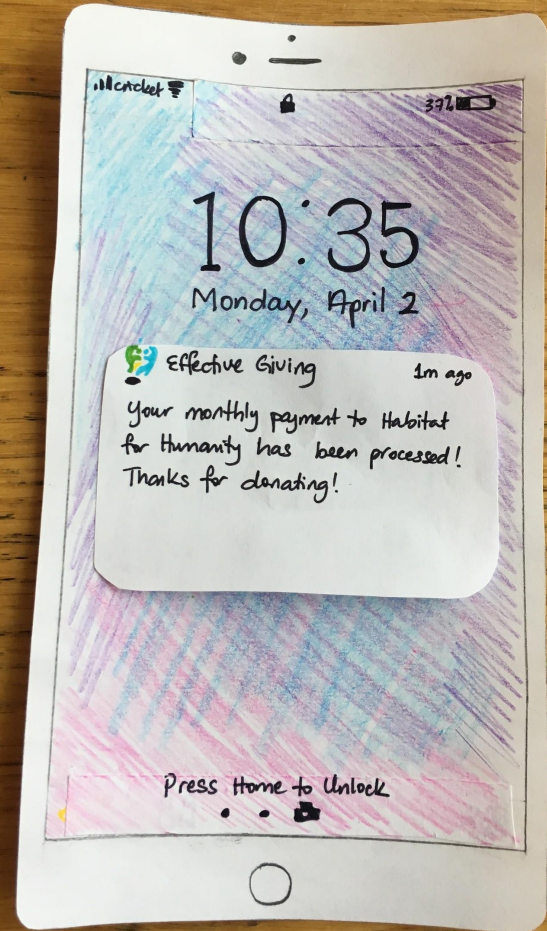 cricket
37%
10:35
Monday, April 2
Effective Giving
1m ago
Your monthly payment to Habitat
for Humanity has been processed!
Thanks for donating!
Press Home to Unlock